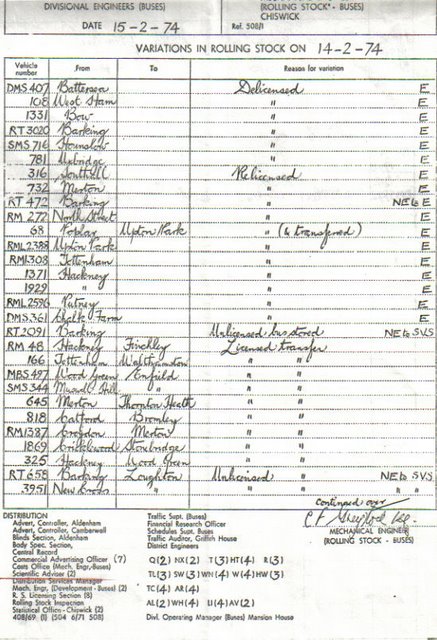 DIVISIONAL ENGINEERS (BUSES)
DATE 15-2-74
(ROLLING STOCK - BUSES)
CHISWICK
Ref. 508/1
VARIATIONS IN ROLLING STOCK ON 14-2-74
Vehicle number From To Reason for variation
DMS 407 Battersea Delicensed E
108 West Ham " E
1331 Bow " E
RT 3020 Barking " E
SMS 716 Hounslow " E
781 Uxbridge " E
316 Southall Relicensed E
732 Merton " E
RT 472 Barking " NE to E
RM 272 North Street " E
68 Poplar Upton Park " (& transferred) E
RML 2388 Upton Park " E
RM 1308 Tottenham " E
1371 Hackney " E
1929 " " E
RML 2596 Putney " E
DMS 361 Chalk Farm " E
RT 2091 Barking Unlicensed bus stored NE to SVS
RM 48 Hackney Finchley Licensed transfer
166 Tottenham Walthamstow " "
MBS 497 Wood Green Enfield " "
SMS 344 Muswell Hill " " "
645 Merton Thornton Heath " "
818 Catford Bromley " "
RM 1387 Croydon Merton " "
1869 Cricklewood Stonebridge " "
325 Hackney Wood Green " "
RT 658 Barking Loughton Unlicensed " NE to SVS
3951 New Cross " " " " "
continued over
MECHANICAL ENGINEER
(ROLLING STOCK - BUSES)
DISTRIBUTION
Advert, Controller, Aldenham
Advert, Controller, Camberwell
Blinds Section, Aldenham
Body Spec, Section,
Central Record
Commercial Advertising Officer (7)
Costs Office (Mech. Engr.-Buses)
Scientific Adviser (2)
Distribution Services Manager
Mech. Engr, (Development - Buses) (2)
R. S. Licensing Section (8)
Rolling Stock Inspection
Statistical Office - Chiswick (2)
408/69 (1) (504 6/71 508)
Traffic Supt. (Buses)
Financial Research Officer
Schedules Supt. Buses
Traffic Auditor, Griffith House
District Engineers
Q(2) NX(2) T(3) HT(4) R(3)
TL(3) SW(3) WN(4) W(4) HW(3)
TC(4) AR(4)
AL(2) WH(4) LI(4) AV(2)
Divl. Operating Manager (Buses) Mansion House